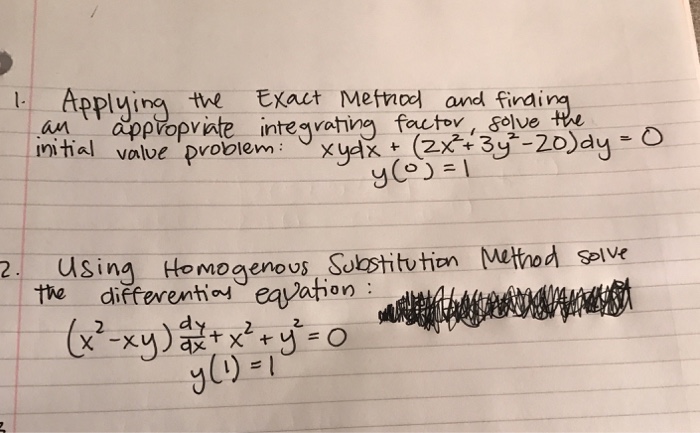 1. Applying the Exact Method and finding
an appropriate integrating factor, solve the
initial value problem: xydx + (2x²+3y²-20)dy = 0
y(0)=1
2. Using Homogenous Substitution Method solve
the differential equation:
(x²-xy) dy/dx + x² + y² = 0
y(1)=1